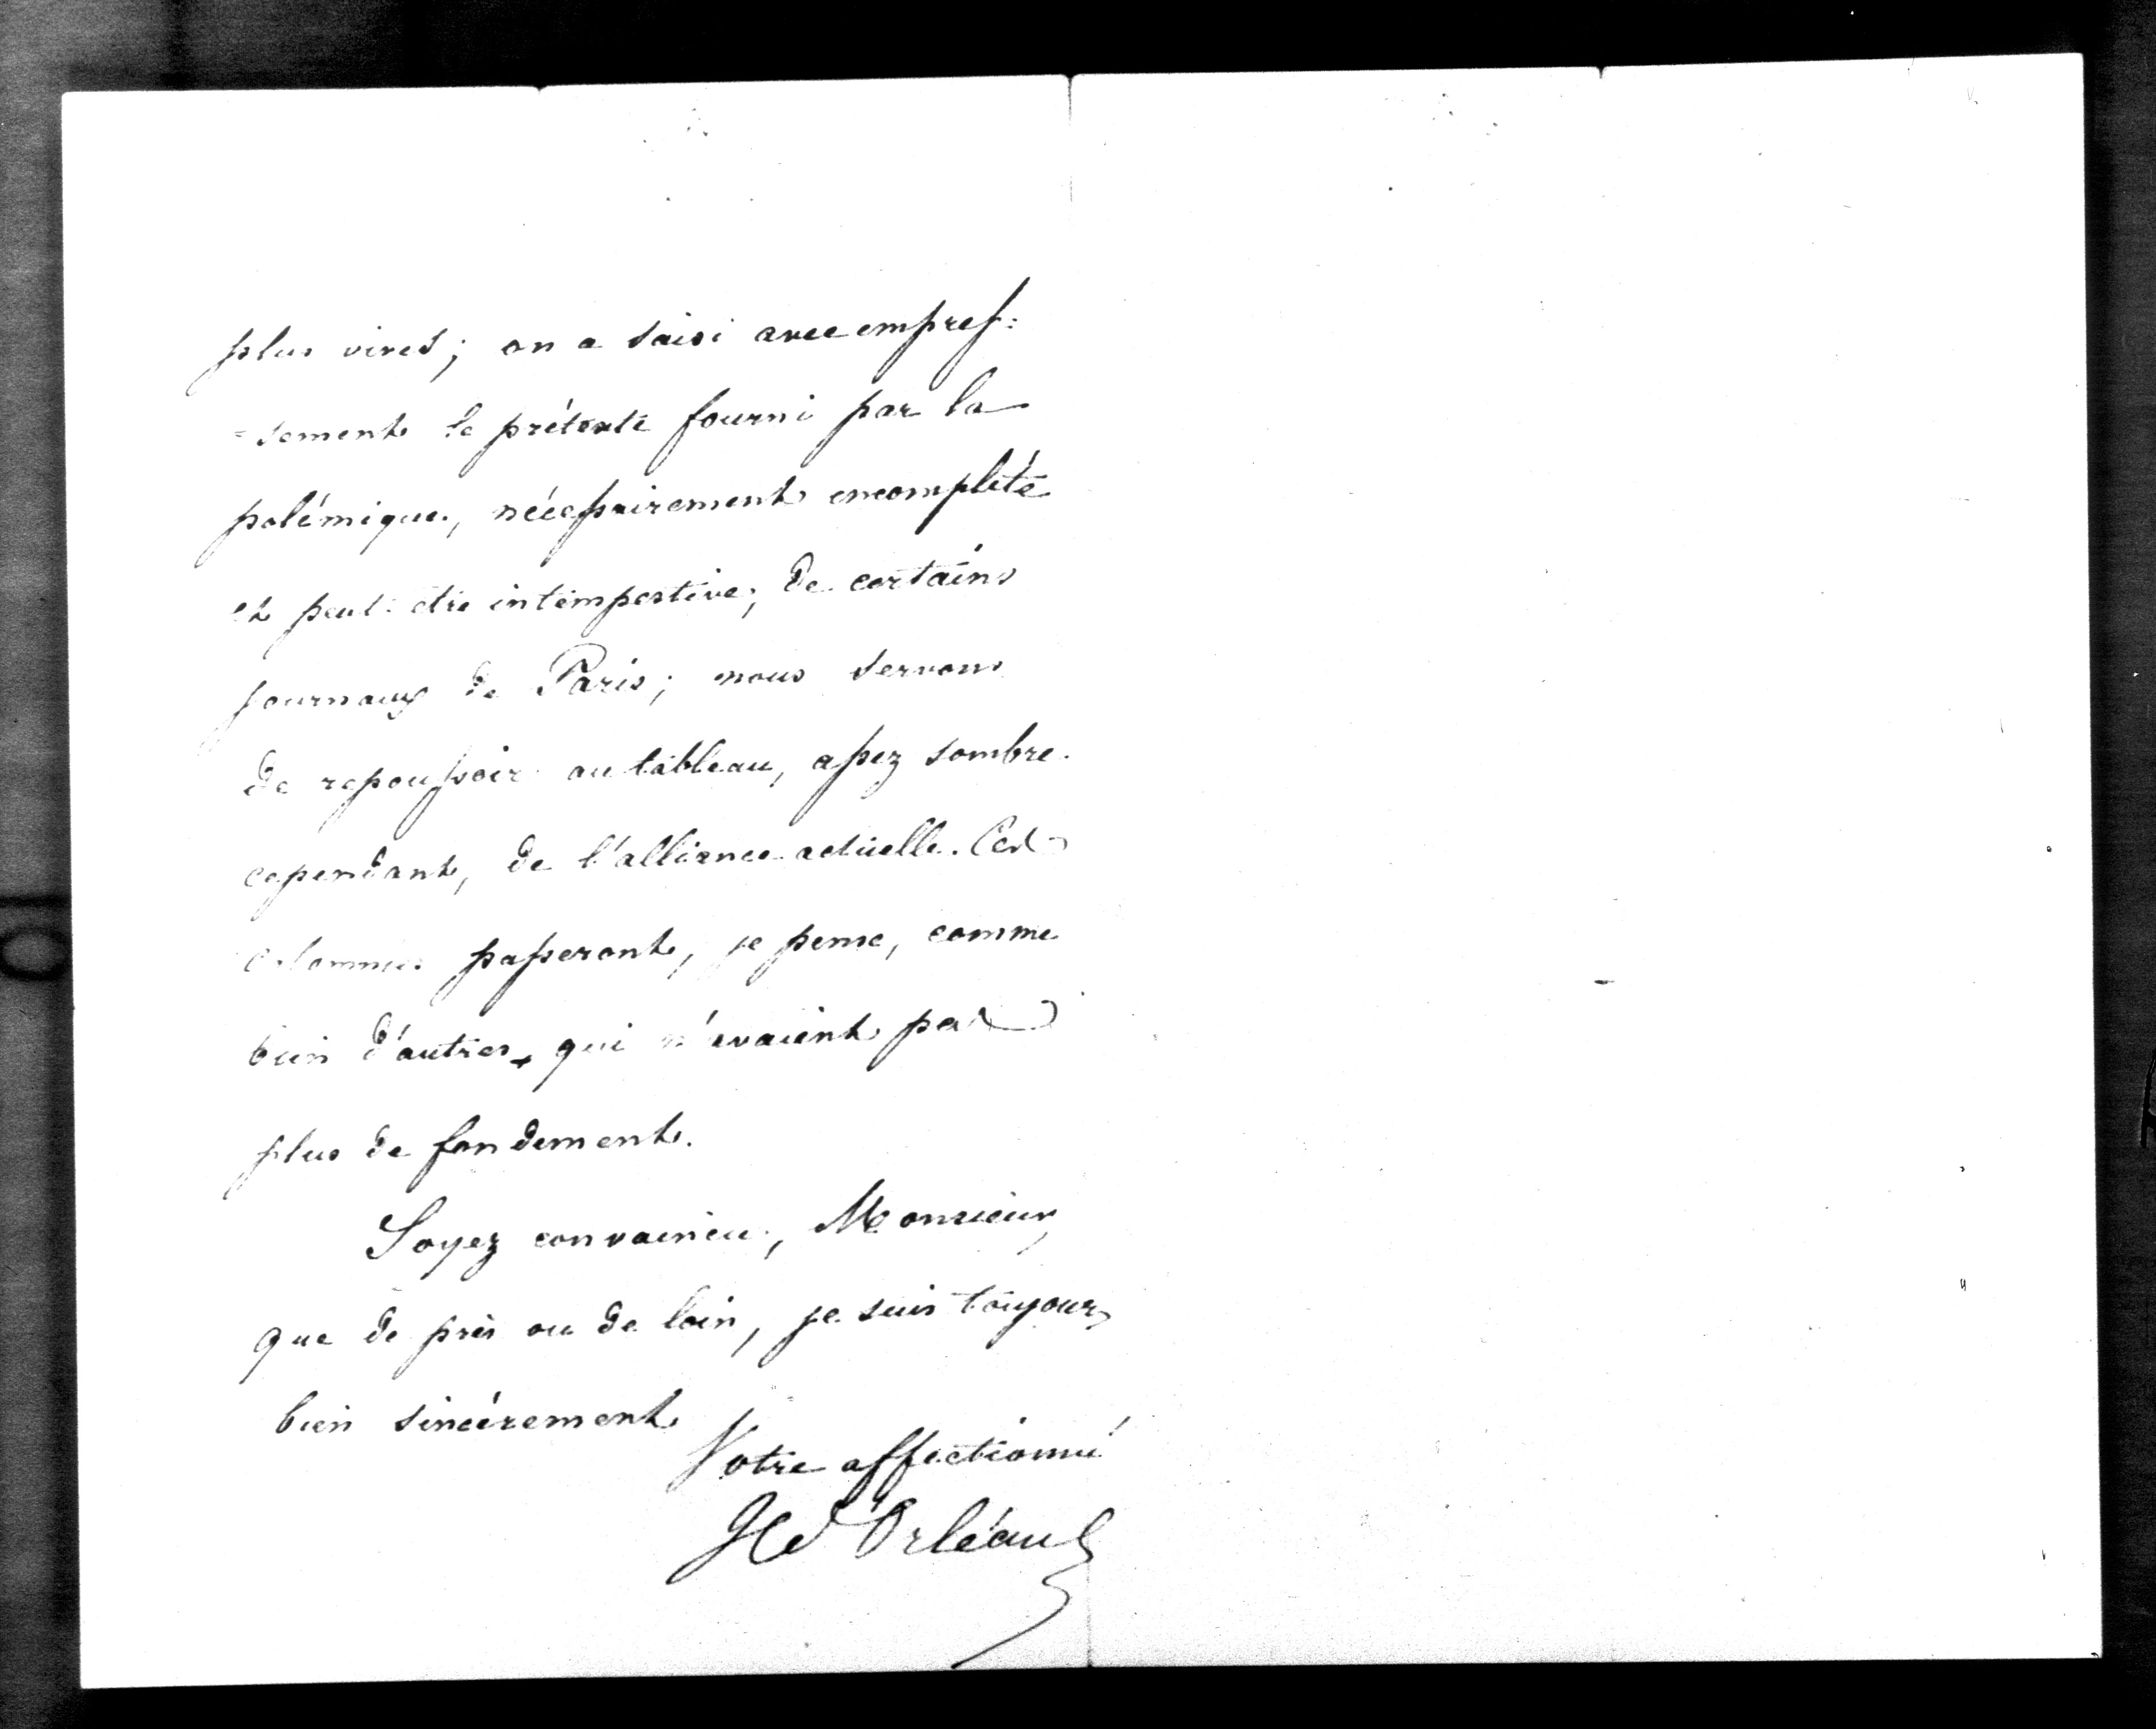 plus vives; on a saisi avec empres=
=sement le prétexte fourni par la
polémique, nécessairement incomplète
et peut-être intempestive, de certains
journaux de Paris; nous servons
de repoussoir au tableau, assez sombre
cependant, de l'alliance actuelle. Ces
calomnies passeront, je pense, comme
bien d'autres, qui n'avaient pas
plus de fondement.
Soyez convaincu, Monsieur,
que de près ou de loin, je suis toujours
bien sincèrement
Votre affectionné
H d'Orléans